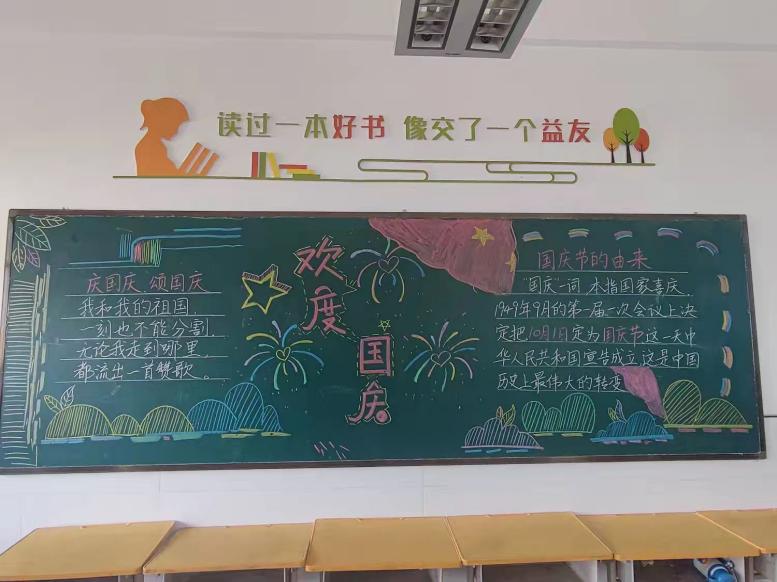 读过一本好书 像交了一个益友
庆国庆 颂国庆
我和我的祖国,
一刻也不能分割,
无论我走到哪里,
都流出一首赞歌。
欢度
国庆
国庆节的由来
国庆一词,本指国家喜庆,
1949年9月的第一届一次会议上决
定把10月1日定为国庆节这一天中
华人民共和国宣告成立这是中国
历史上最伟大的转变